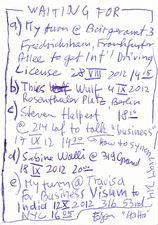 WAITING FOR
a) My turn @ Bürgeramt 3
Fredrichshain, Frankfurter
Allee to get Int'l Driving
License 28 VIII 2012 14:15
b) Wulf 4 IX 2012
Rosenthaler Platz Berlin
c) Steven Halpert 18
@ 214 Laf to talk "business"
17 IX 12 14 how to
d) Sabine Walli @ 319 Grand
18 IX 2012 20
e) My turn @ Travisa
for Business Visum to
India 12 X 2012 316 53rd
NYC 16 05 "HoHo"